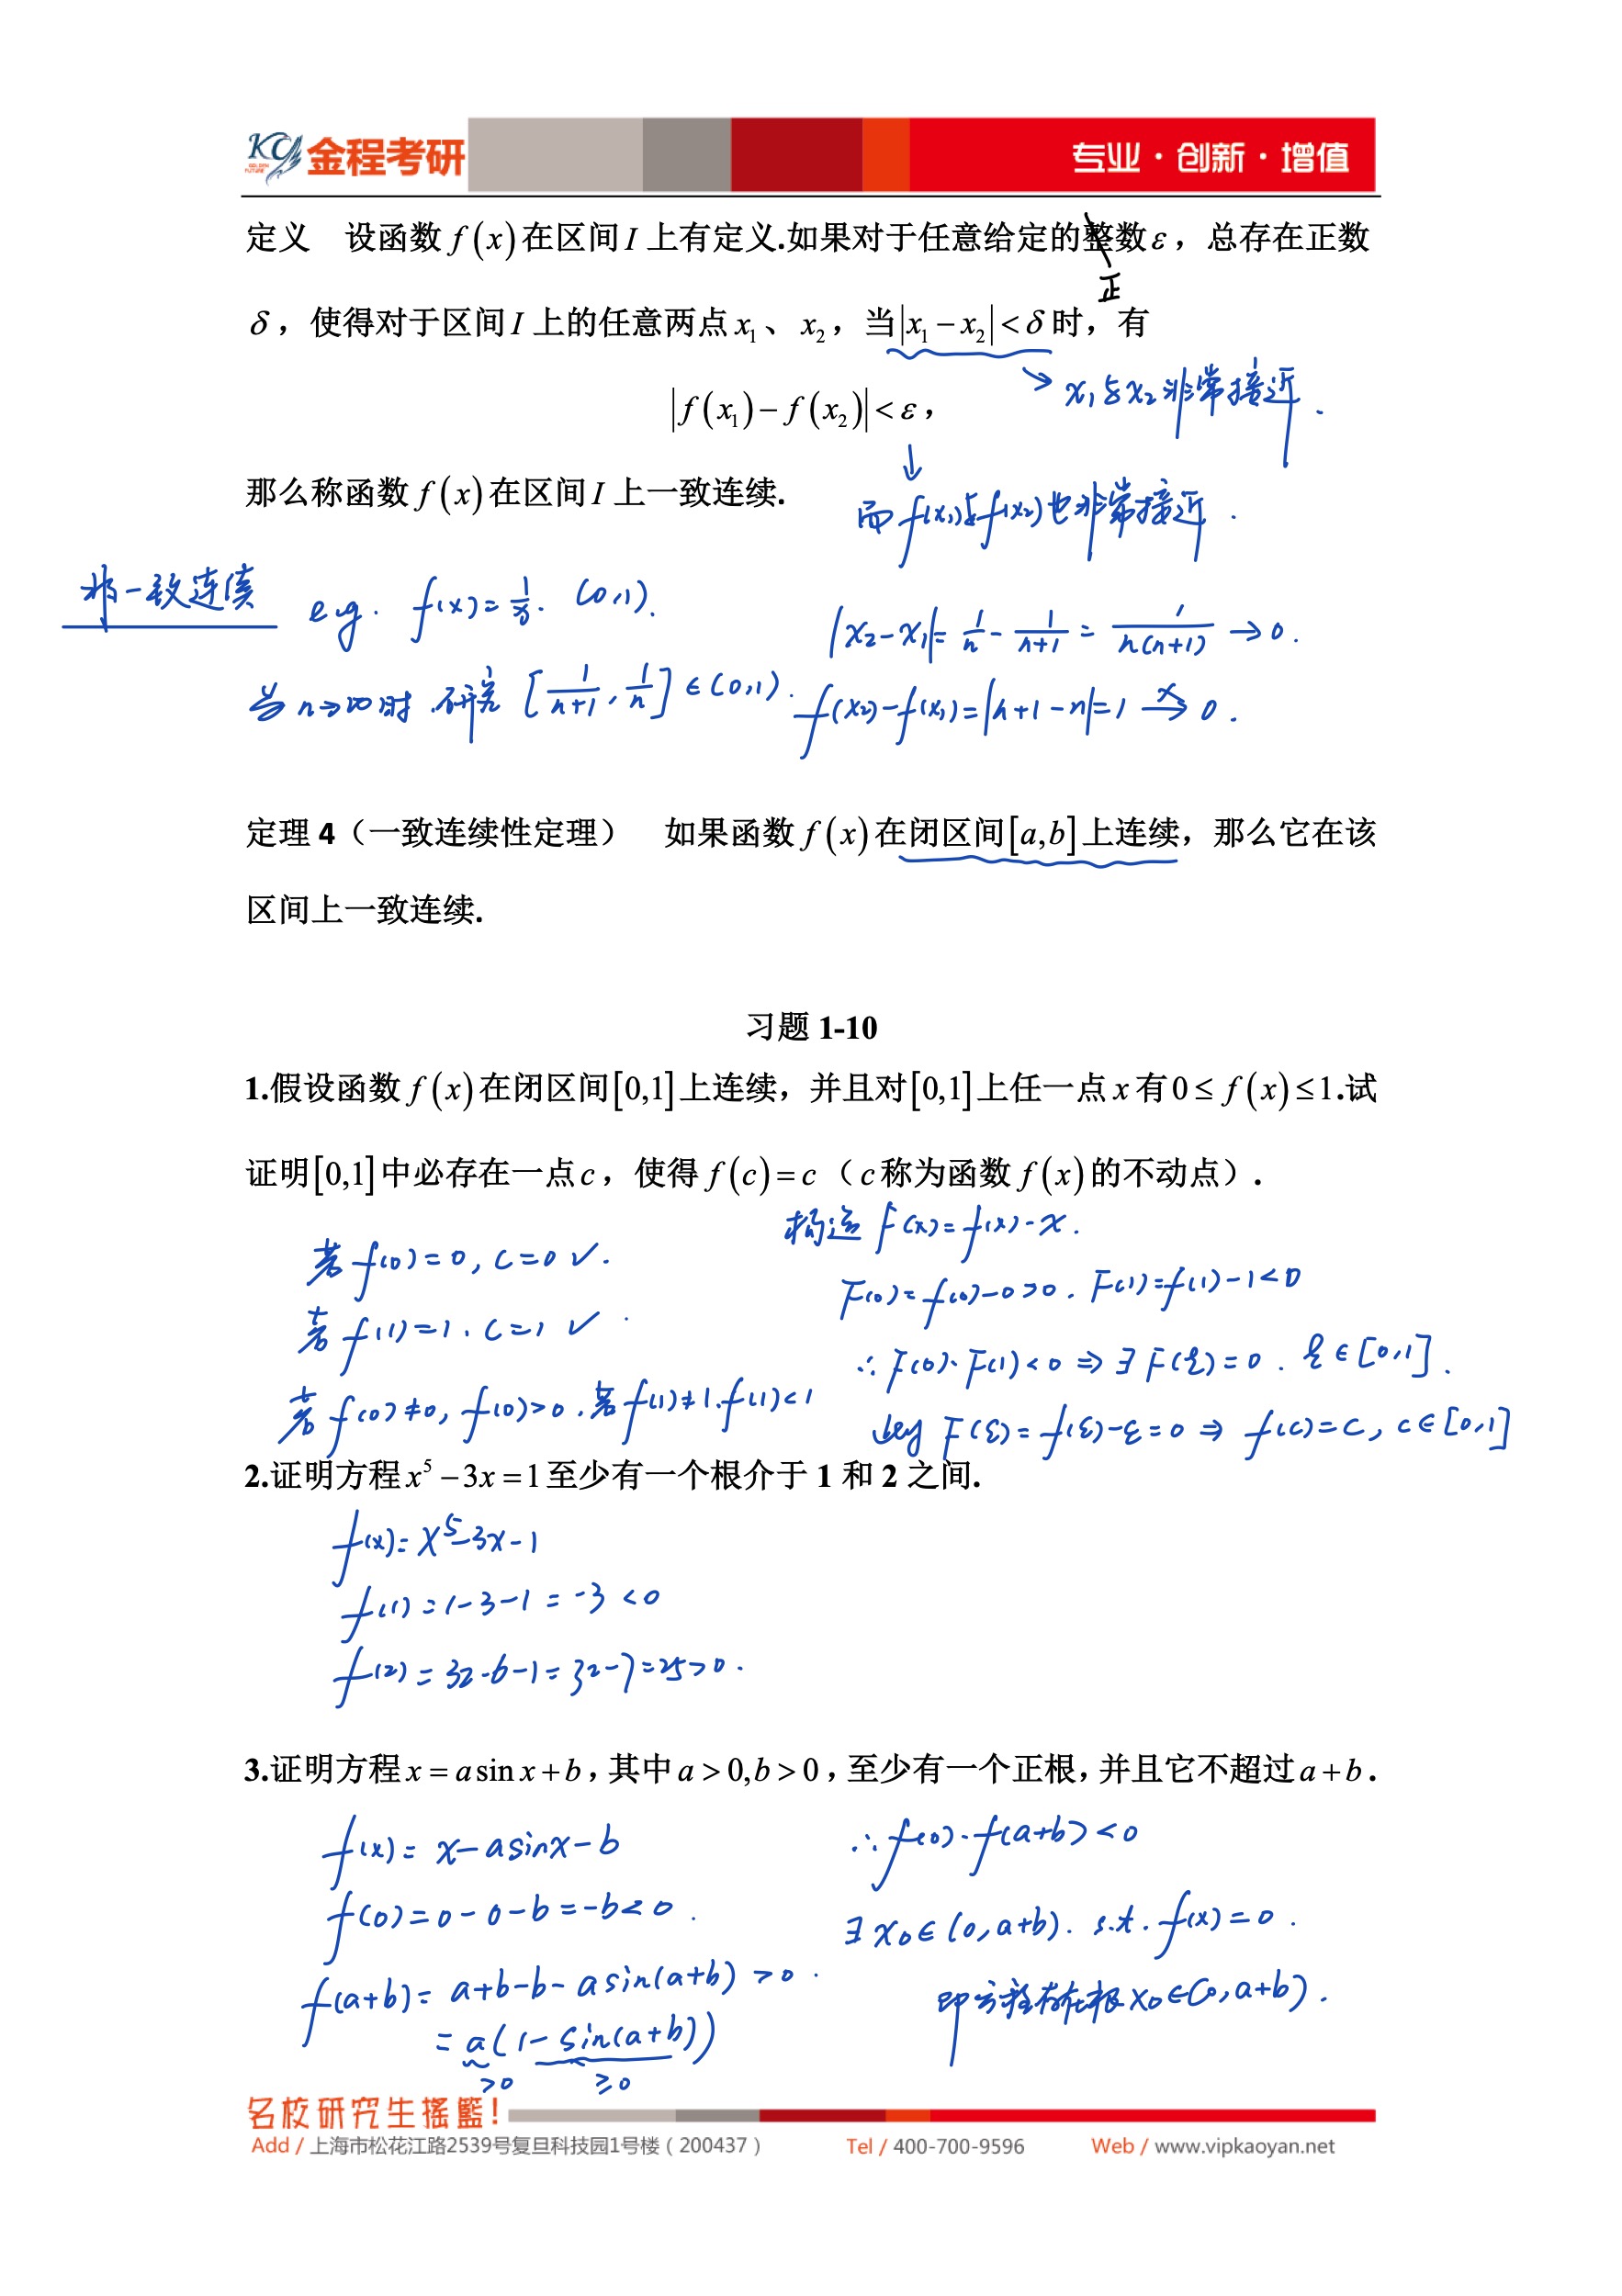 KC 金程考研 专业·创新·增值
GOLDEN FUTURE
定义 设函数 f(x) 在区间 I 上有定义.如果对于任意给定的整数 ε，总存在正数
正
δ，使得对于区间 I 上的任意两点 x₁、x₂，当 |x₁ − x₂| < δ 时，有
→ x₁与x₂非常接近.
|f(x₁) − f(x₂)| < ε，
↓
那么称函数 f(x) 在区间 I 上一致连续.
而 f(x₁)与f(x₂)也非常接近.
非一致连续 e.g. f(x)=1/x. (0,1).
|x₂−x₁|= 1/n − 1/(n+1) = 1/(n(n+1)) → 0.
当 n→∞时.研究 [1/(n+1), 1/n] ∈ (0,1).
f(x₂)−f(x₁)=|n+1−n|=1 ↛ 0.
定理 4（一致连续性定理） 如果函数 f(x) 在闭区间 [a,b] 上连续，那么它在该
区间上一致连续.
习题 1-10
1.假设函数 f(x) 在闭区间 [0,1] 上连续，并且对 [0,1] 上任一点 x 有 0 ≤ f(x) ≤ 1.试
证明 [0,1] 中必存在一点 c，使得 f(c) = c（c 称为函数 f(x) 的不动点）.
若 f(0)=0, c=0 ✓.
若 f(1)=1. c=1 ✓.
若 f(0)≠0, f(0)>0. 若 f(1)≠1. f(1)<1
构造 F(x)=f(x)−x.
F(0)=f(0)−0>0. F(1)=f(1)−1<0
∴ F(0)·F(1)<0 ⇒ ∃ F(ξ)=0. ξ∈[0,1].
F(ξ)=f(ξ)−ξ=0 ⇒ f(c)=c, c∈[0,1]
2.证明方程 x⁵ − 3x = 1 至少有一个根介于 1 和 2 之间.
f(x)= x⁵−3x−1
f(1) = 1−3−1 = −3 <0
f(2) = 32−6−1 = 32−7=25>0.
3.证明方程 x = a sin x + b，其中 a > 0, b > 0，至少有一个正根，并且它不超过 a + b.
f(x)= x−asinx−b
f(0)=0−0−b=−b<0.
f(a+b)= a+b−b−asin(a+b) >0.
= a(1−sin(a+b))
>0 ≥0
∴ f(0)·f(a+b)<0
∃ x₀∈(0,a+b). s.t. f(x)=0.
即方程存在根 x₀∈(0,a+b).
名校研究生摇篮!
Add / 上海市松花江路2539号复旦科技园1号楼（200437） Tel / 400-700-9596 Web / www.vipkaoyan.net